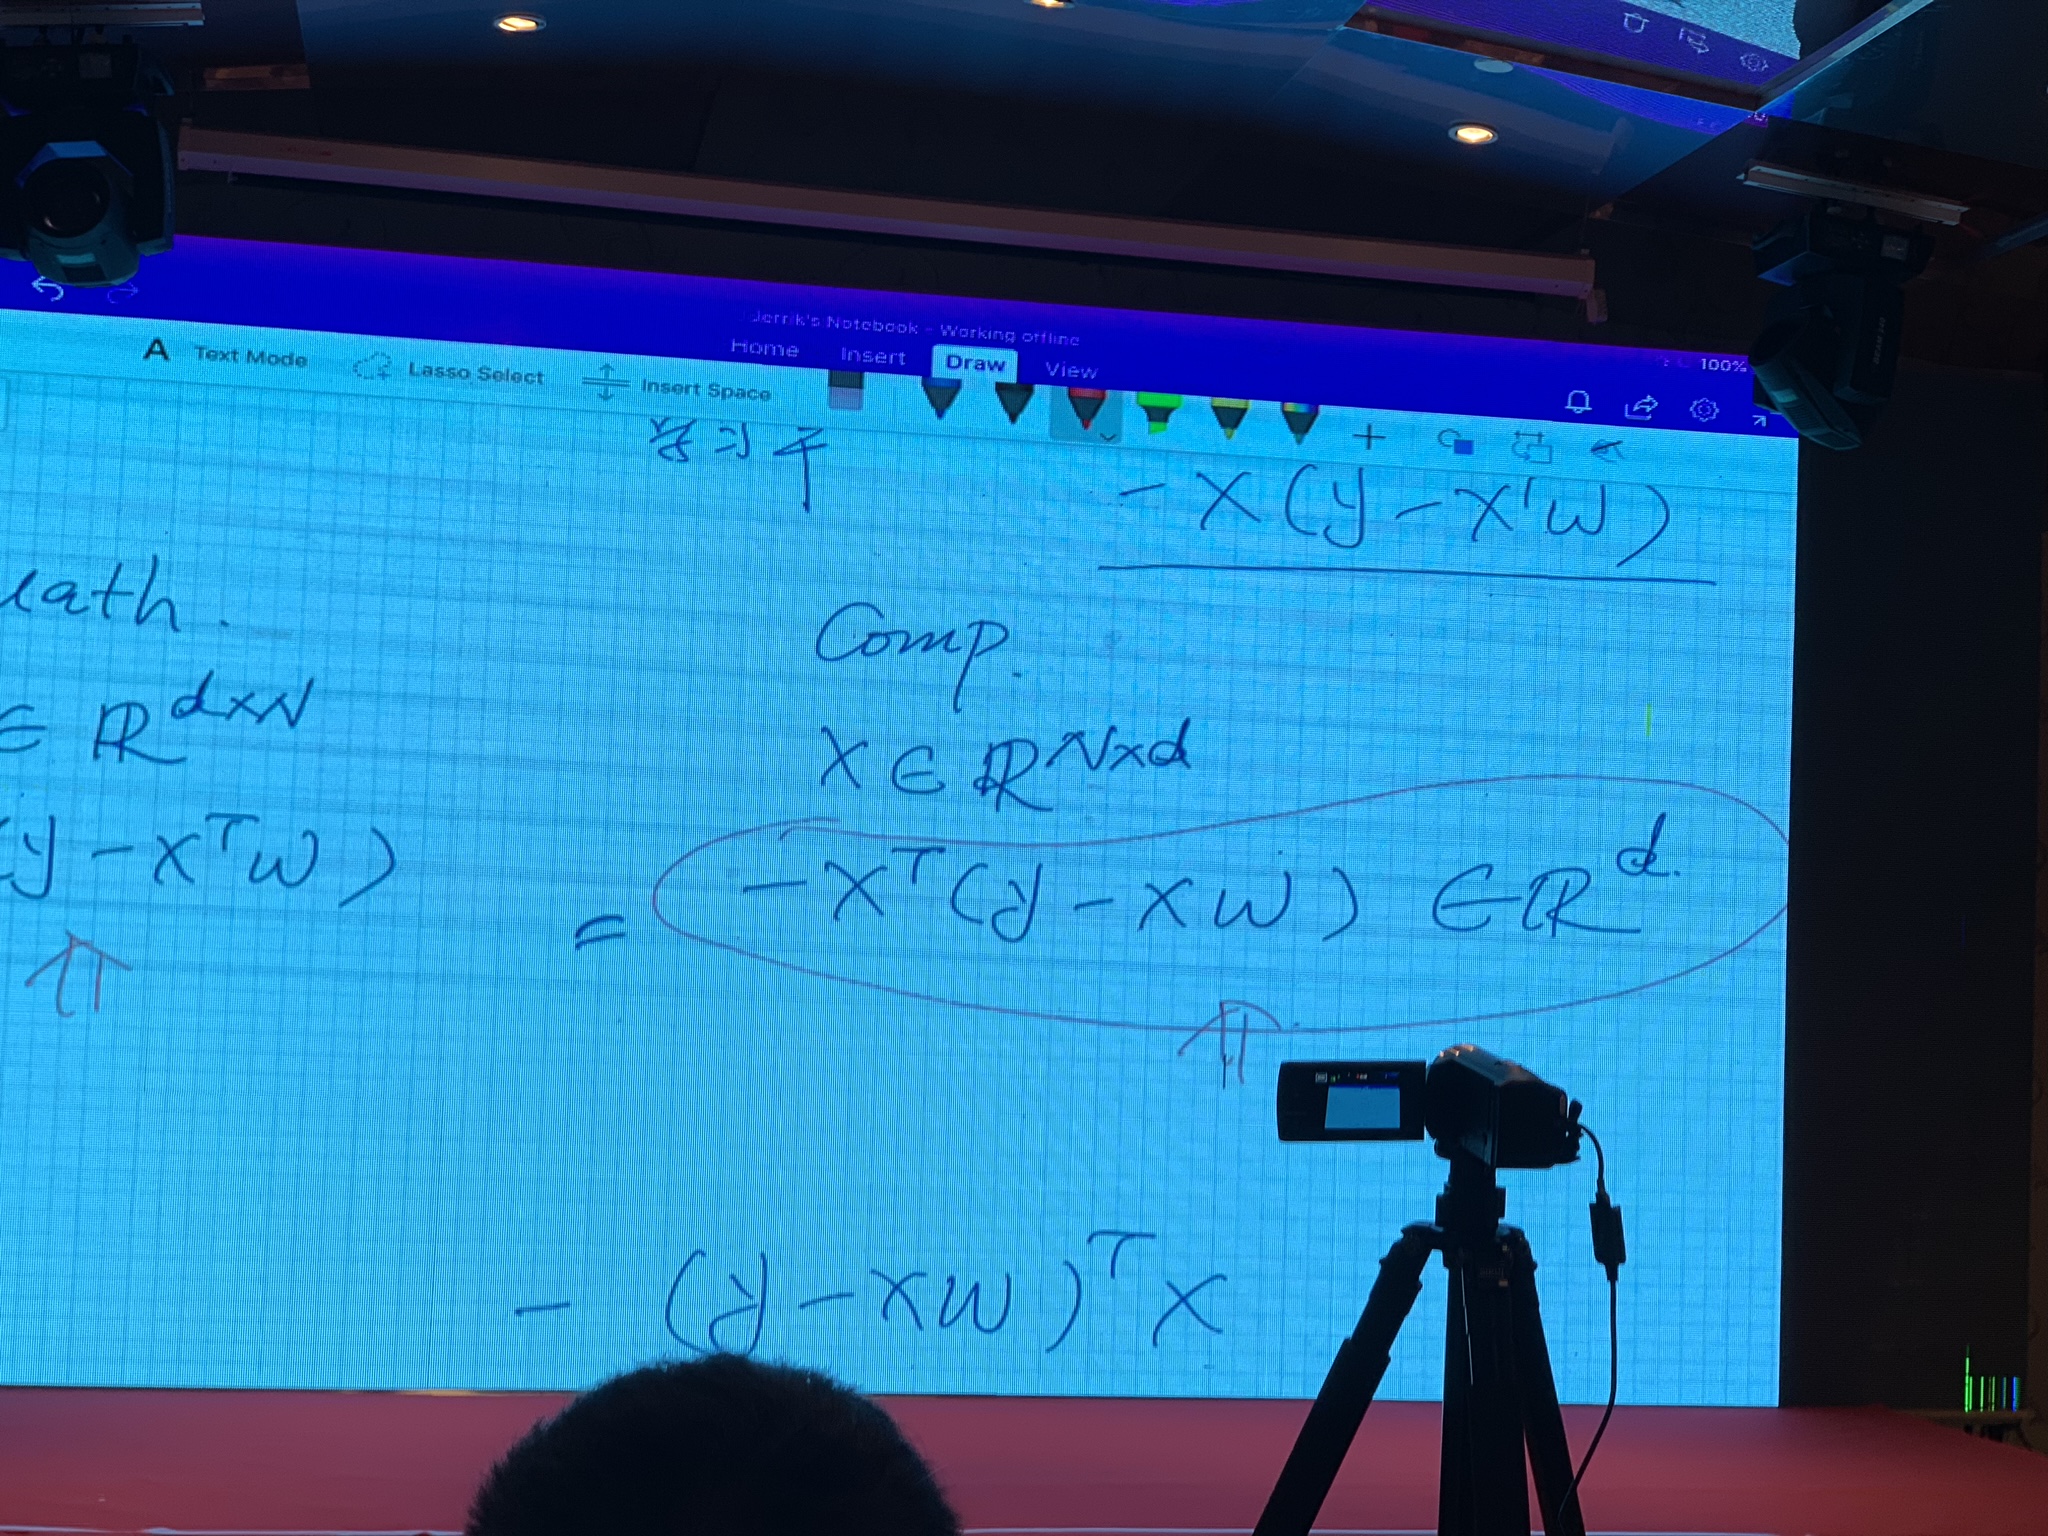 Jerrik's Notebook - Working offline
100%
Home Insert Draw View
A Text Mode Lasso Select Insert Space
-X(y-X'W)
Comp.
∈ ℝ^{d×N}
X∈ℝ^{N×d}
(y-X^T W)
= -X^T(y-XW) ∈ℝ^{d.}
⇑ ⇑
- (y-XW)^T X